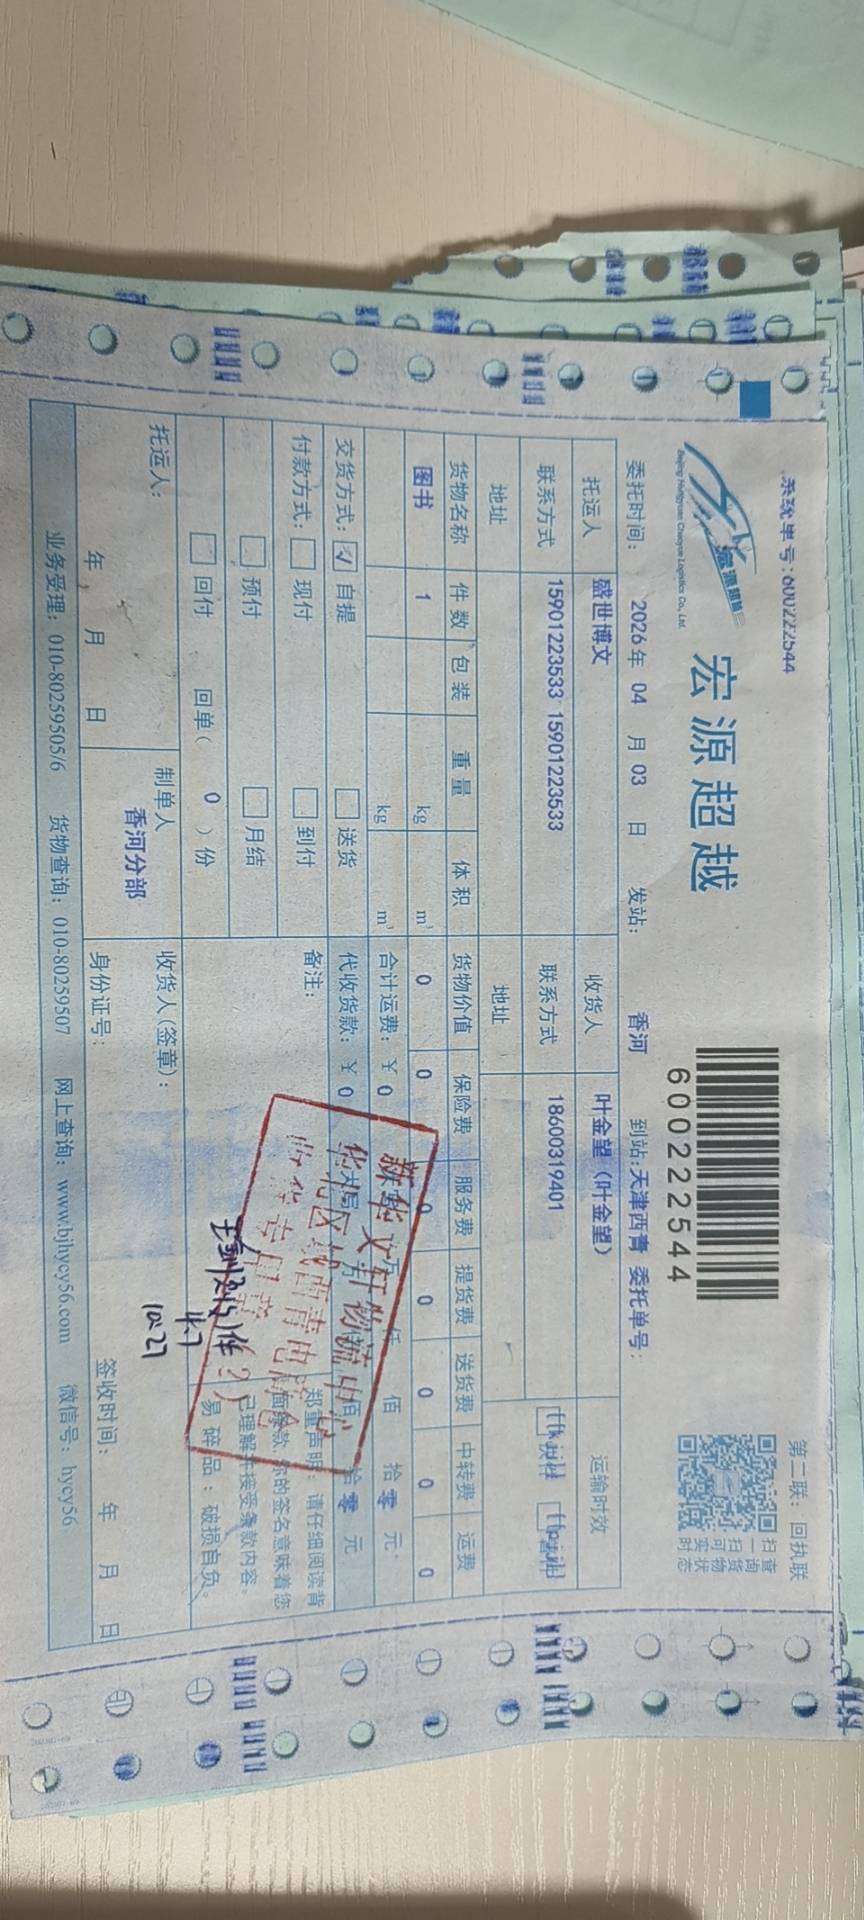 系统单号:600222544
第二联：回执联
宏源超越
Beijing Hongyuan Chaoyue Logistics Co., Ltd.
600222544
扫一扫可实时
查询货物状态
委托时间： 2026 年 04 月 03 日 发站： 香河 到站:天津西青 委托单号:
托运人 盛世博文 收货人 叶金望（叶金望） 运输时效
联系方式 15901223533 15901223533 联系方式 18600319401
地址 地址
货物名称 件数 包装 重量 体积 货物价值 保险费 服务费 提货费 送货费 中转费 运费
图书 1 kg m³ 0 0 0 0 0 0 0
kg m³ 合计运费：￥ 0 万 仟 佰 拾 零 元
交货方式： 自提 送货 代收货款：￥ 0 佰 拾 零 元
付款方式： 现付 到付 备注：
预付 月结
回付 回单（ 0 ）份
郑重声明：请仔细阅读背
面条款，你的签名意味着您
已理解并接受条款内容。
易碎品：破损自负。
新华文轩物流中心
收货专用章
4.7
10:27
托运人： 制单人 收货人(签章)：
香河分部
年 月 日 身份证号： 签收时间： 年 月 日
业务受理：010-80259505/6 货物查询：010-80259507 网上查询：www.bjhycy56.com 微信号：hycy56